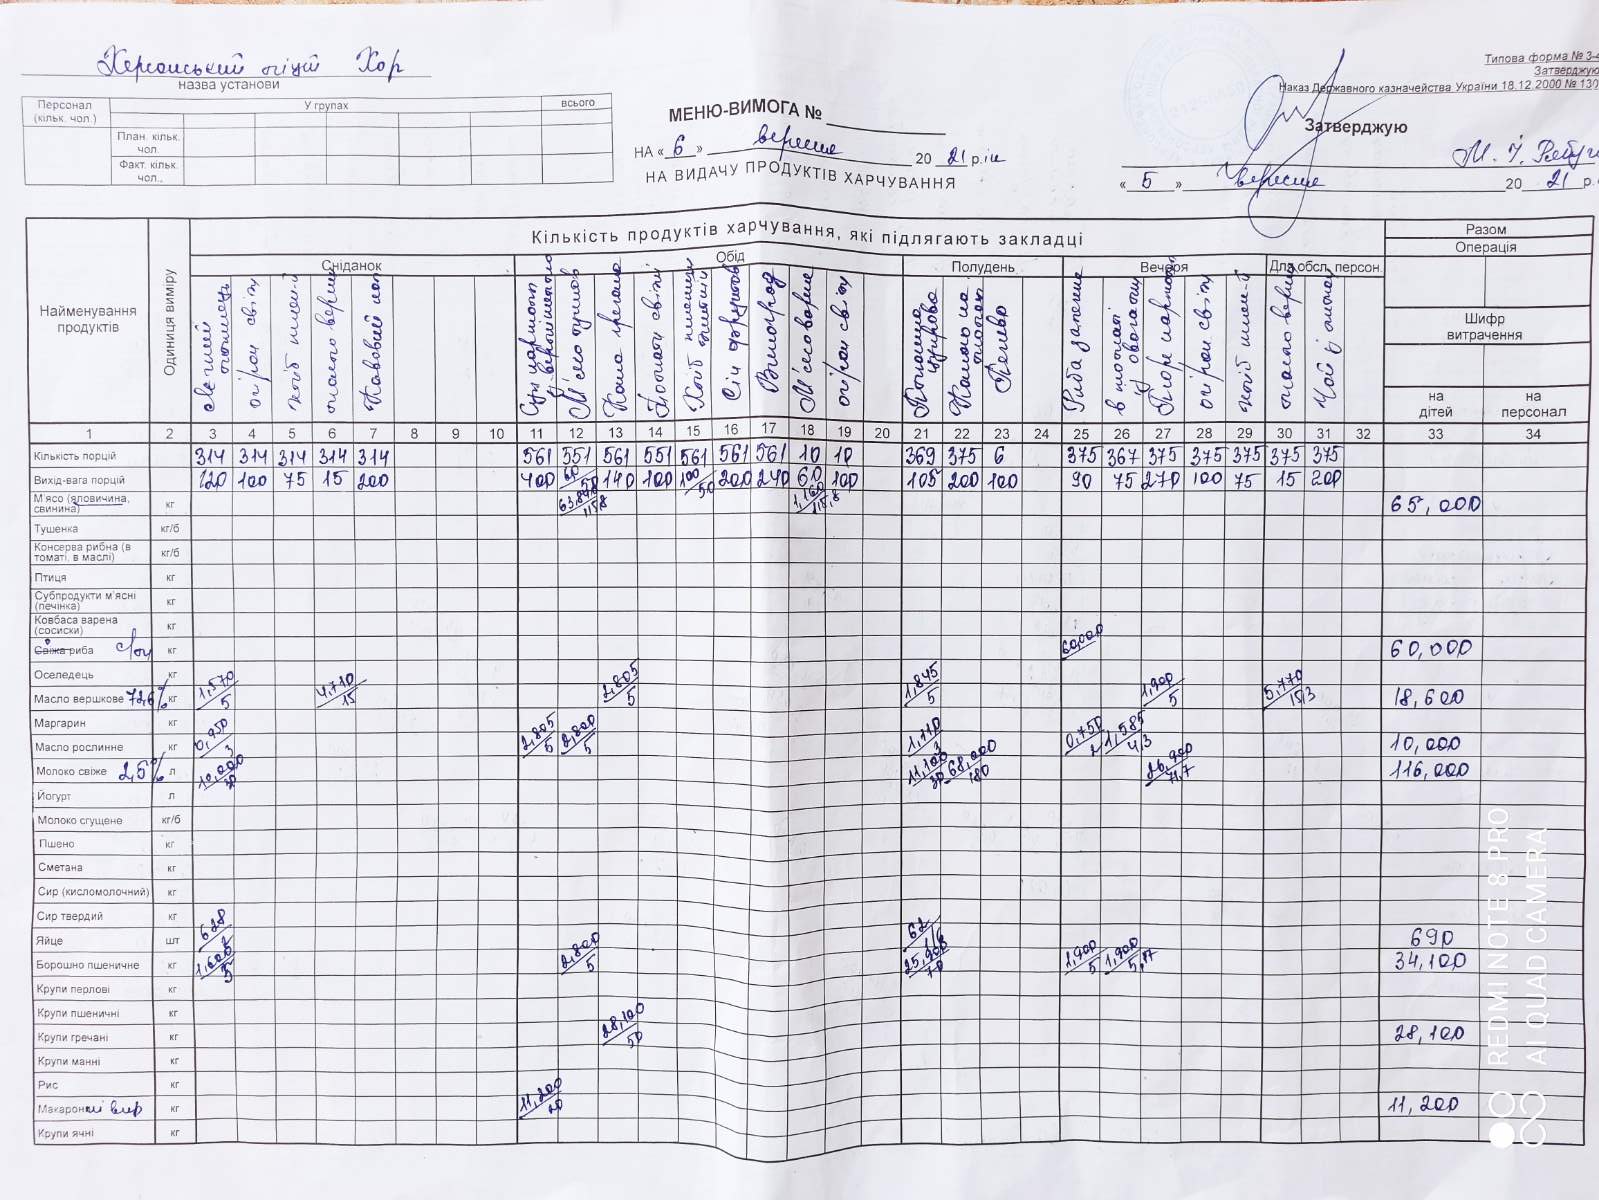 Херсонський ліцей Хор
назва установи
Типова форма № З-4
Затверджую
Наказ Державного казначейства України 18.12.2000 № 130
Персонал (кільк. чол.) У групах всього
План. кільк. чол.
Факт. кільк. чол.,
МЕНЮ-ВИМОГА №
НА « 6 » вересня 20 21 р.
НА ВИДАЧУ ПРОДУКТІВ ХАРЧУВАННЯ
Затверджую
« 5 » вересня 20 21 р.
Найменування продуктів
Одиниця виміру
Кількість продуктів харчування, які підлягають закладці
Разом
Операція
Шифр витрачення
на дітей
на персонал
Сніданок Обід Полудень Вечеря Для обсл. персон.
огірки свіжі
Каша гречана
Виноград
огірки свіжі
Печиво
Риба запечена
огірки свіжі
1 2 3 4 5 6 7 8 9 10 11 12 13 14 15 16 17 18 19 20 21 22 23 24 25 26 27 28 29 30 31 32 33 34
Кількість порцій 314 314 314 314 314 561 551 561 551 561 561 561 10 10 369 375 6 375 367 375 375 375 375 375
Вихід-вага порцій 120 100 75 15 200 400 60/50 140 100 100/50 200 240 60 100 105 200 100 90 75 270 100 75 15 200
М'ясо (яловичина, свинина) кг 63,840/115,8 1,160/115,8 65,000
Тушенка кг/б
Консерва рибна (в томаті, в маслі) кг/б
Птиця кг
Субпродукти м'ясні (печінка) кг
Ковбаса варена (сосиски) кг
Свіжа риба с/м кг 60,000 60,000
Оселедець кг
Масло вершкове 72,6% кг 1,570/5 4,710/15 2,805/5 1,845/5 1,900/5 5,770/15,3 18,600
Маргарин кг
Масло рослинне кг 0,950/3 2,805/5 2,800/5 1,110/3 0,750/2 1,585/4,3 10,000
Молоко свіже 2,5% л 10,000/32 11,100/30 68,000/180 26,900/71,7 116,000
Йогурт л
Молоко сгущене кг/б
Пшено кг
Сметана кг
Сир (кисломолочний) кг
Сир твердий кг
Яйце шт 628/2 62/1/6 690
Борошно пшеничне кг 1,600/5 2,800/5 25,900/70 1,900/5 1,900/5,17 34,100
Крупи перлові кг
Крупи пшеничні кг
Крупи гречані кг 28,100/50 28,100
Крупи манні кг
Рис кг
Макаронні вир кг 11,200/20 11,200
Крупи ячні кг
REDMI NOTE 8 PRO
AI QUAD CAMERA